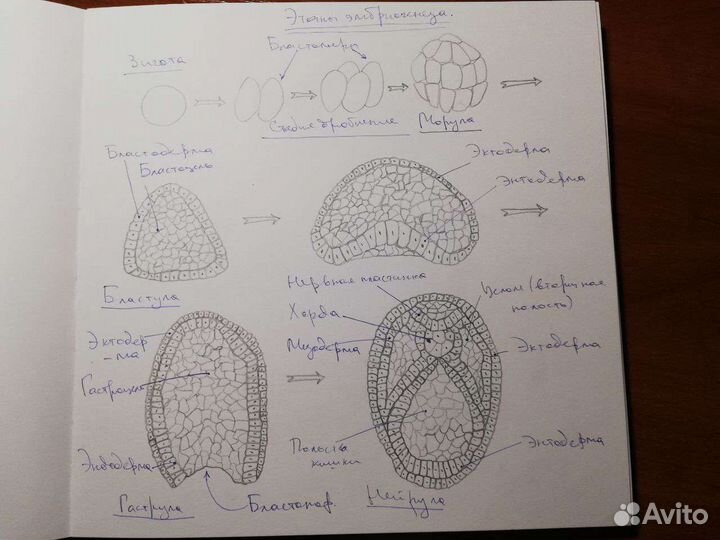 Этапы эмбриогенеза.
Зигота
Бластомеры
Стадия дробления
Морула
Бластодерма
Бластоцель
Бластула
Эктодерма
Энтодерма
Эктодер
-ма
Гастроцель
Энтодерма
Гаструла
Бластопор.
Нервная пластинка
Хорда
Мезодерма
Целом (вторичная
полость)
Эктодерма
Полость
кишки
Энтодерма
Нейрула
Avito